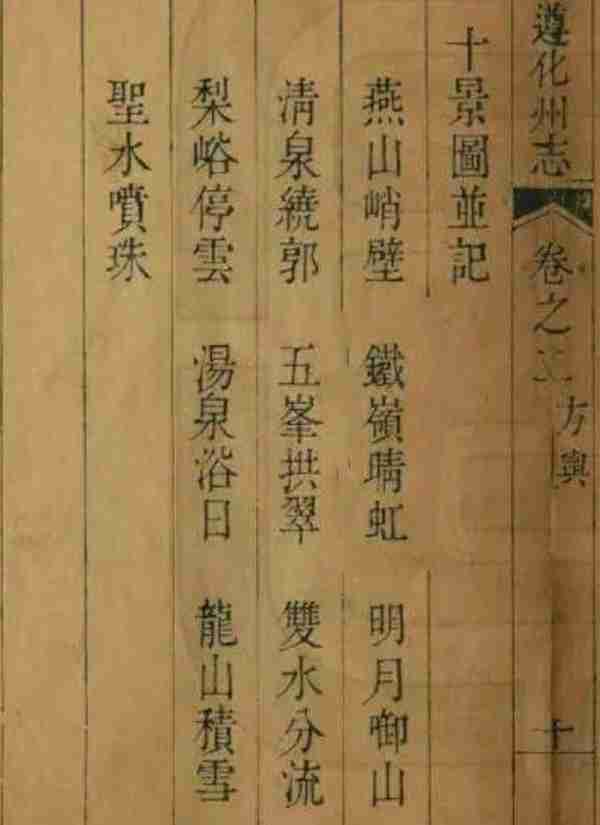 遵化州志
卷之
方輿
十
十景圖並記
燕山峭壁 鐵嶺晴虹 明月啣山
清泉繞郭 五峯拱翠 雙水分流
梨峪停雲 湯泉浴日 龍山積雪
聖水噴珠